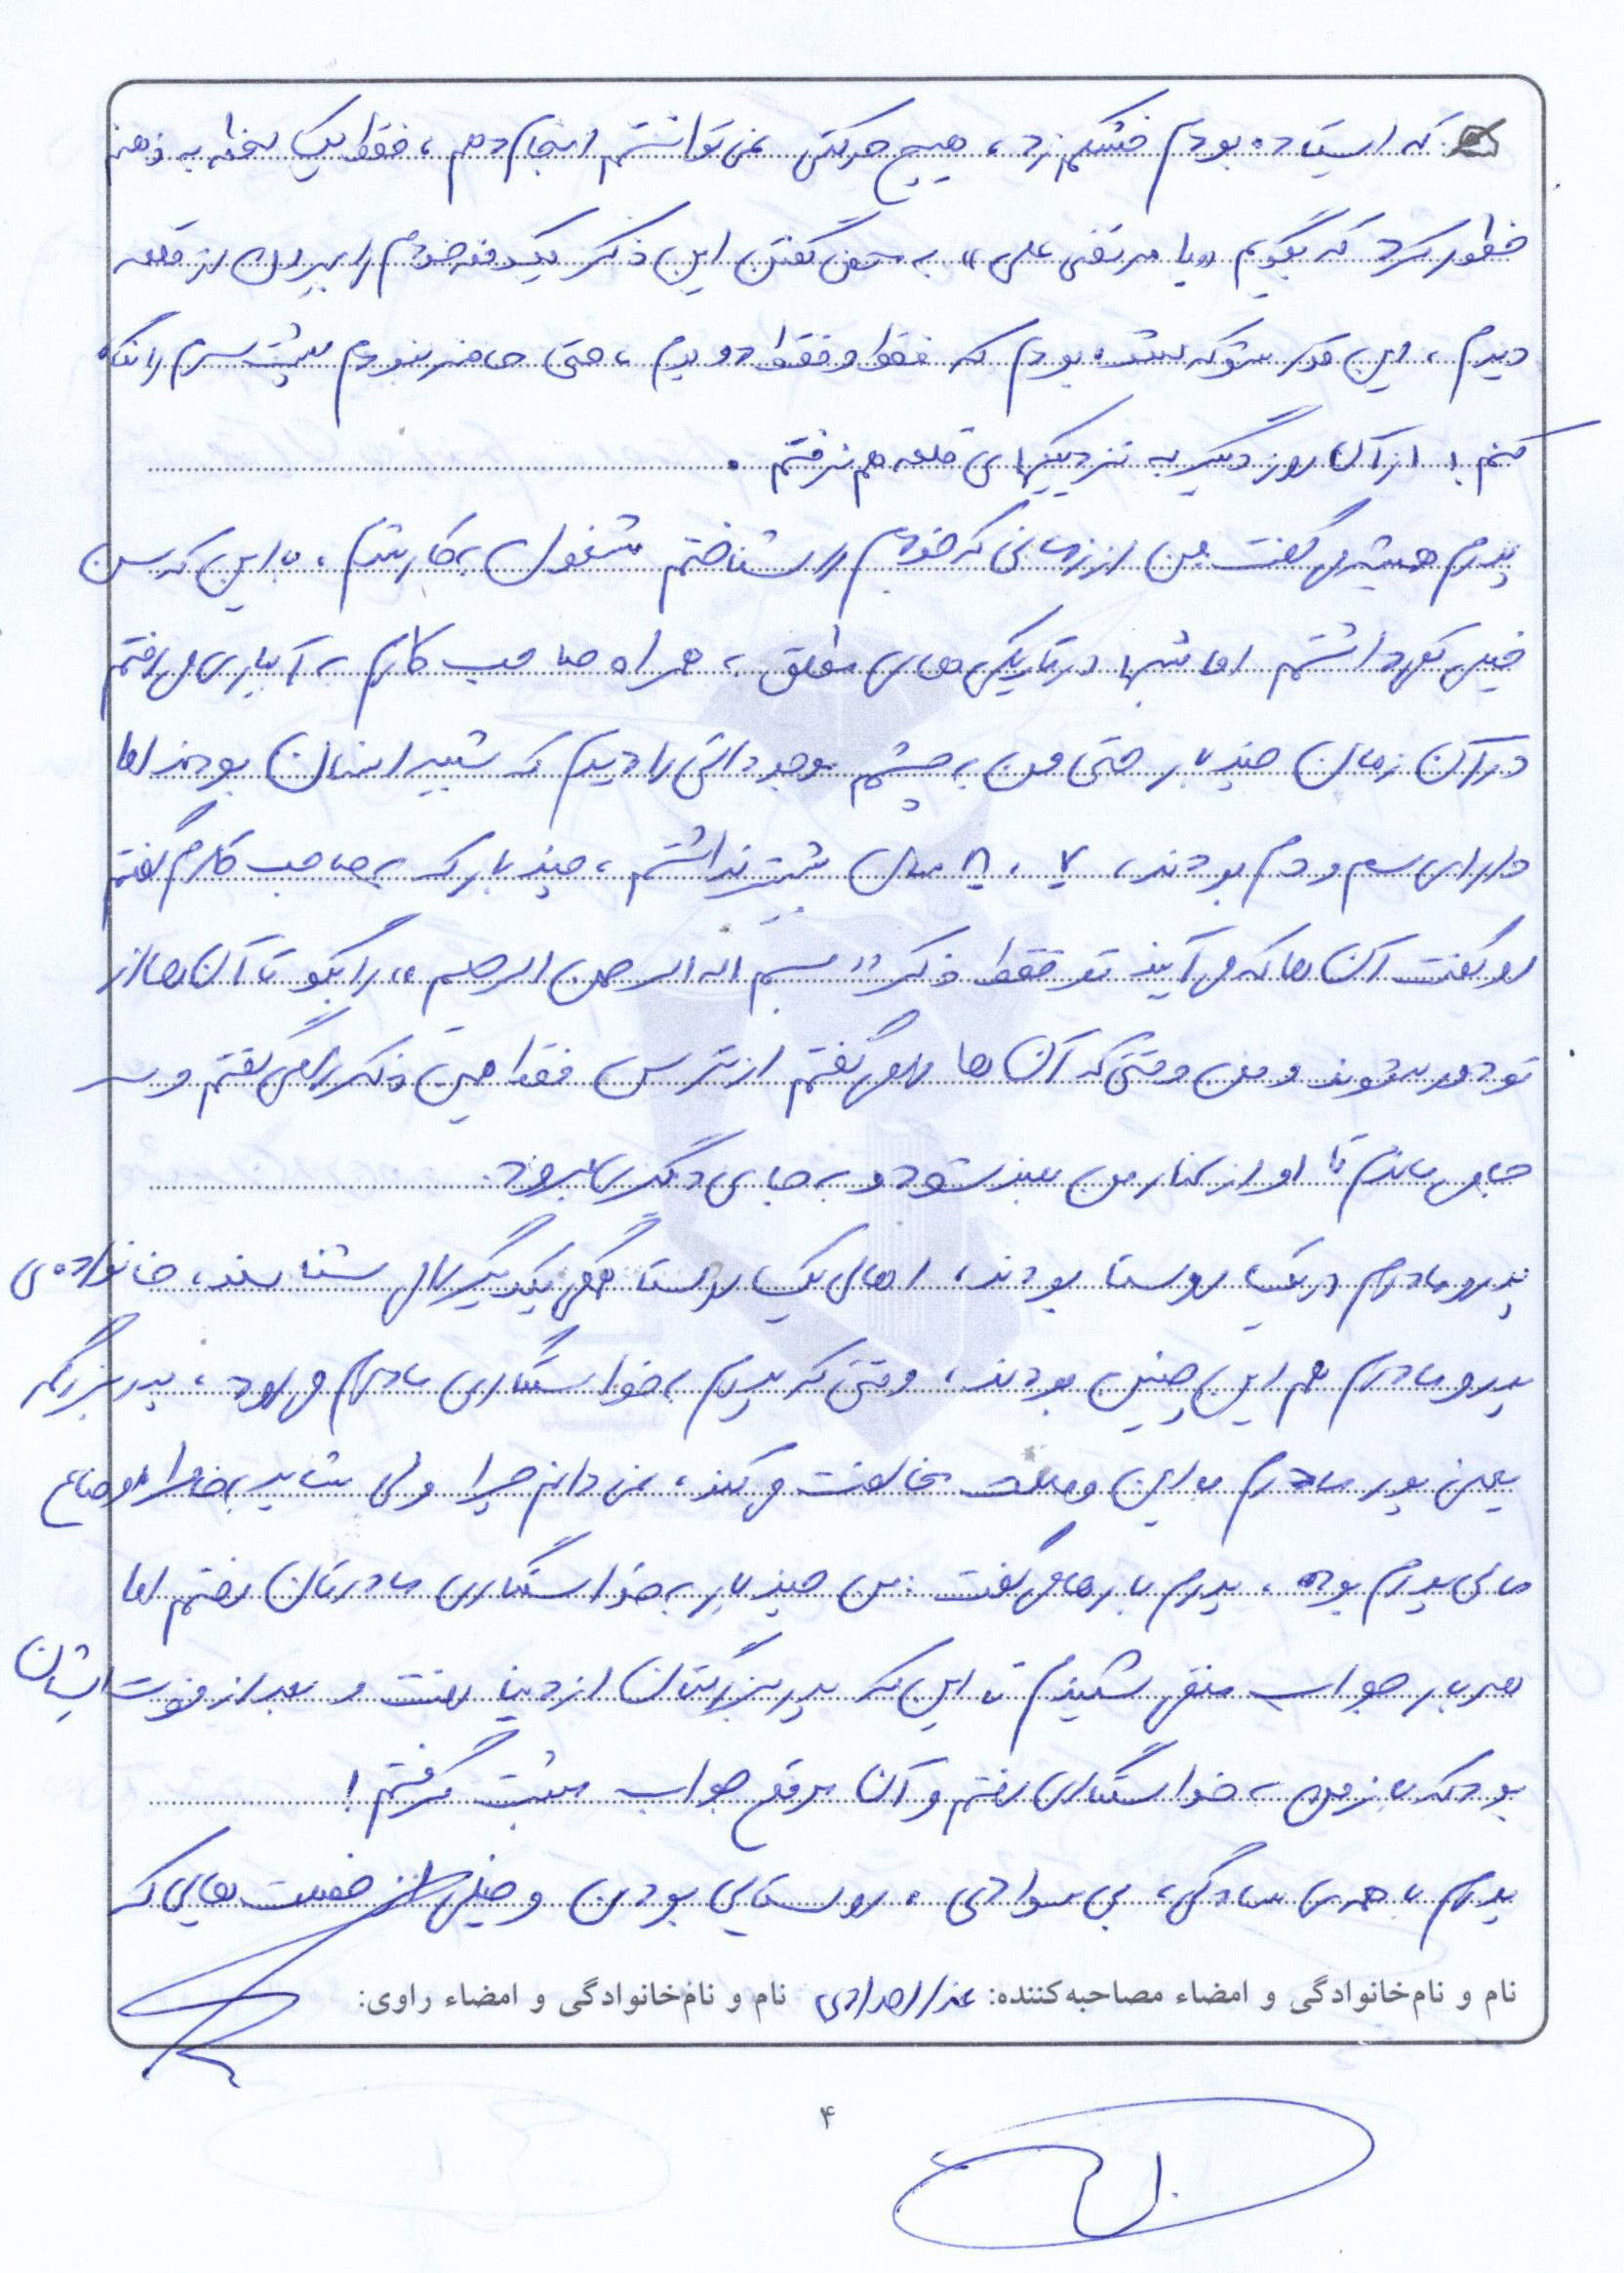 که ایستاده بودم خشکم زد، هیچ حرکتی نمی‌توانستم انجام دهم، فقط یک لحظه به ذهنم
خطور کرد که بگویم «یا مرتضی علی» به محض گفتن این ذکر یکدفعه خودم را بیرون از قلعه
دیدم، این قدر شوکه شده بودم که فقط و فقط دویدم، حتی حاضر نبودم پشت سرم را نگاه
کنم! از آن روز دیگر به نزدیکیهای قلعه هم نرفتم.
پدرم همیشه می‌گفت من از زمانی که خودم را شناختم مشغول به کار شدم، با این که سن
خیلی کمی داشتم اما شبها در تاریکی‌های مطلق، همراه صاحب کارم به آبیاری می‌رفتم
در آن زمان چند بار حتی من به چشم موجوداتی را دیدم که شبیه انسان بودند اما
دارای سم و دم بودند، ۷، ۸ سال بیشتر نداشتم، چند بار که به صاحب کارم گفتم
او گفت آن‌ها که می‌آیند تو فقط ذکر «بسم اله الرحمن الرحیم» را بگو تا آن‌ها از
تو دور شوند و من وقتی که آن‌ها را می‌گفتم از ترس فقط همین ذکر را می‌گفتم و سر
جایم می‌ماندم تا او از کنار من رد شود و به جای دیگری برود.
پدر و مادرم در یک روستا بودند، اهالی یک روستا همگی یکدیگر را می‌شناسند، خانواده‌ی
پدر و مادرم هم این چنین بودند، وقتی که پدرم به خواستگاری مادرم می‌رود، پدربزرگم
یعنی پدر مادرم با این وصلت مخالفت می‌کند، نمی‌دانم چرا ولی شاید به خاطر اوضاع
مالی پدرم بوده، پدرم بارها می‌گفت: من چند بار به خواستگاری مادرتان رفتم اما
هر بار جواب منفی شنیدم تا این که پدربزرگتان از دنیا رفت و بعد از فوت ایشان
بود که باز من به خواستگاری رفتم و آن موقع جواب مثبت گرفتم!
پدرم با همه‌ی سادگی، بی سوادی، روستایی بودن و خیلی از خصلت‌هایی که
نام و نام‌خانوادگی و امضاء مصاحبه‌کننده: عذرا مرادی نام و نام‌خانوادگی و امضاء راوی:
۴